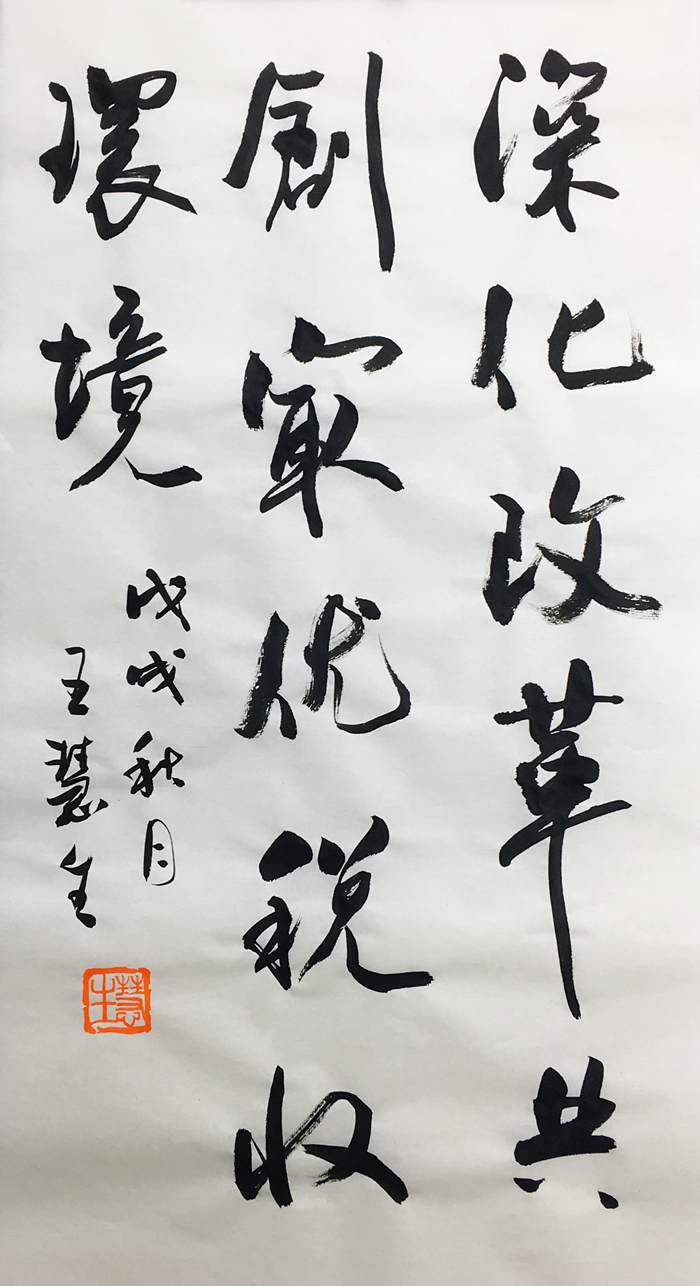 深化改革共
創最优税收
環境
戊戌秋月
王慧生
慧生